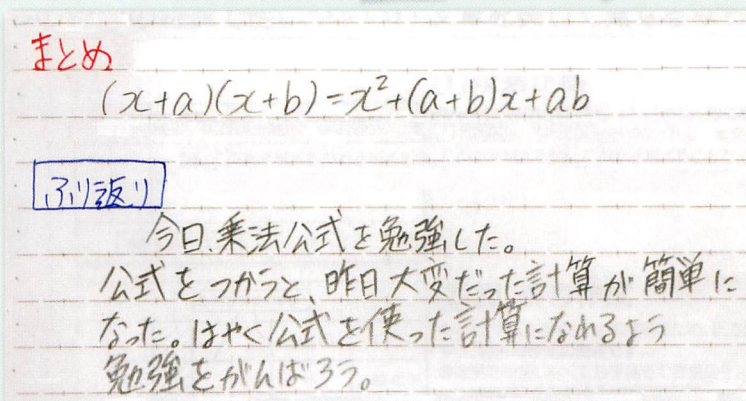 まとめ
(x+a)(x+b)=x²+(a+b)x+ab
ふり返り
今日、乗法公式を勉強した。
公式をつかうと、昨日大変だった計算が簡単に
なった。はやく公式を使った計算になれるよう
勉強をがんばろう。